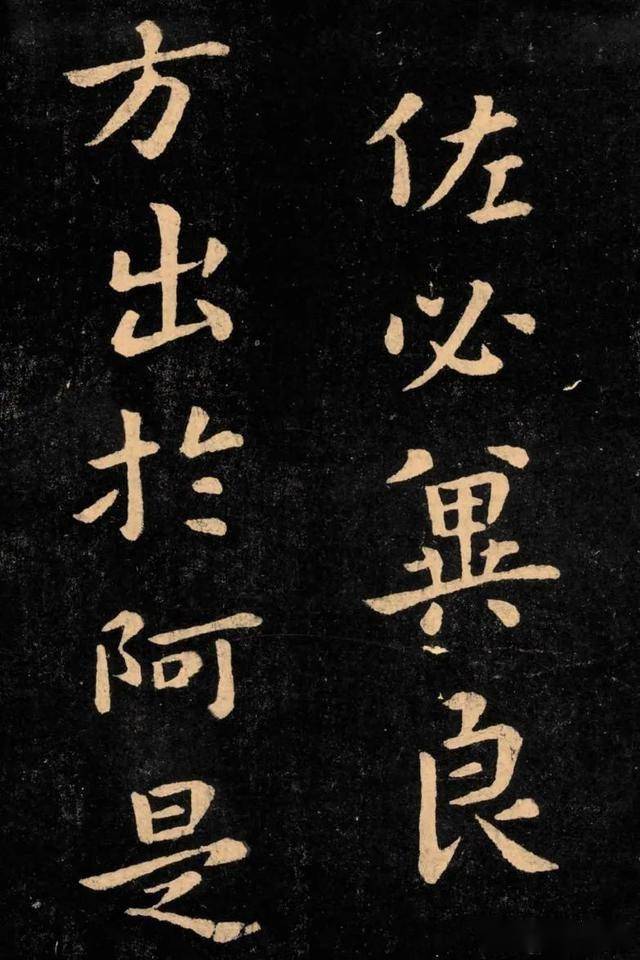 佐必兾良
方出於阿是